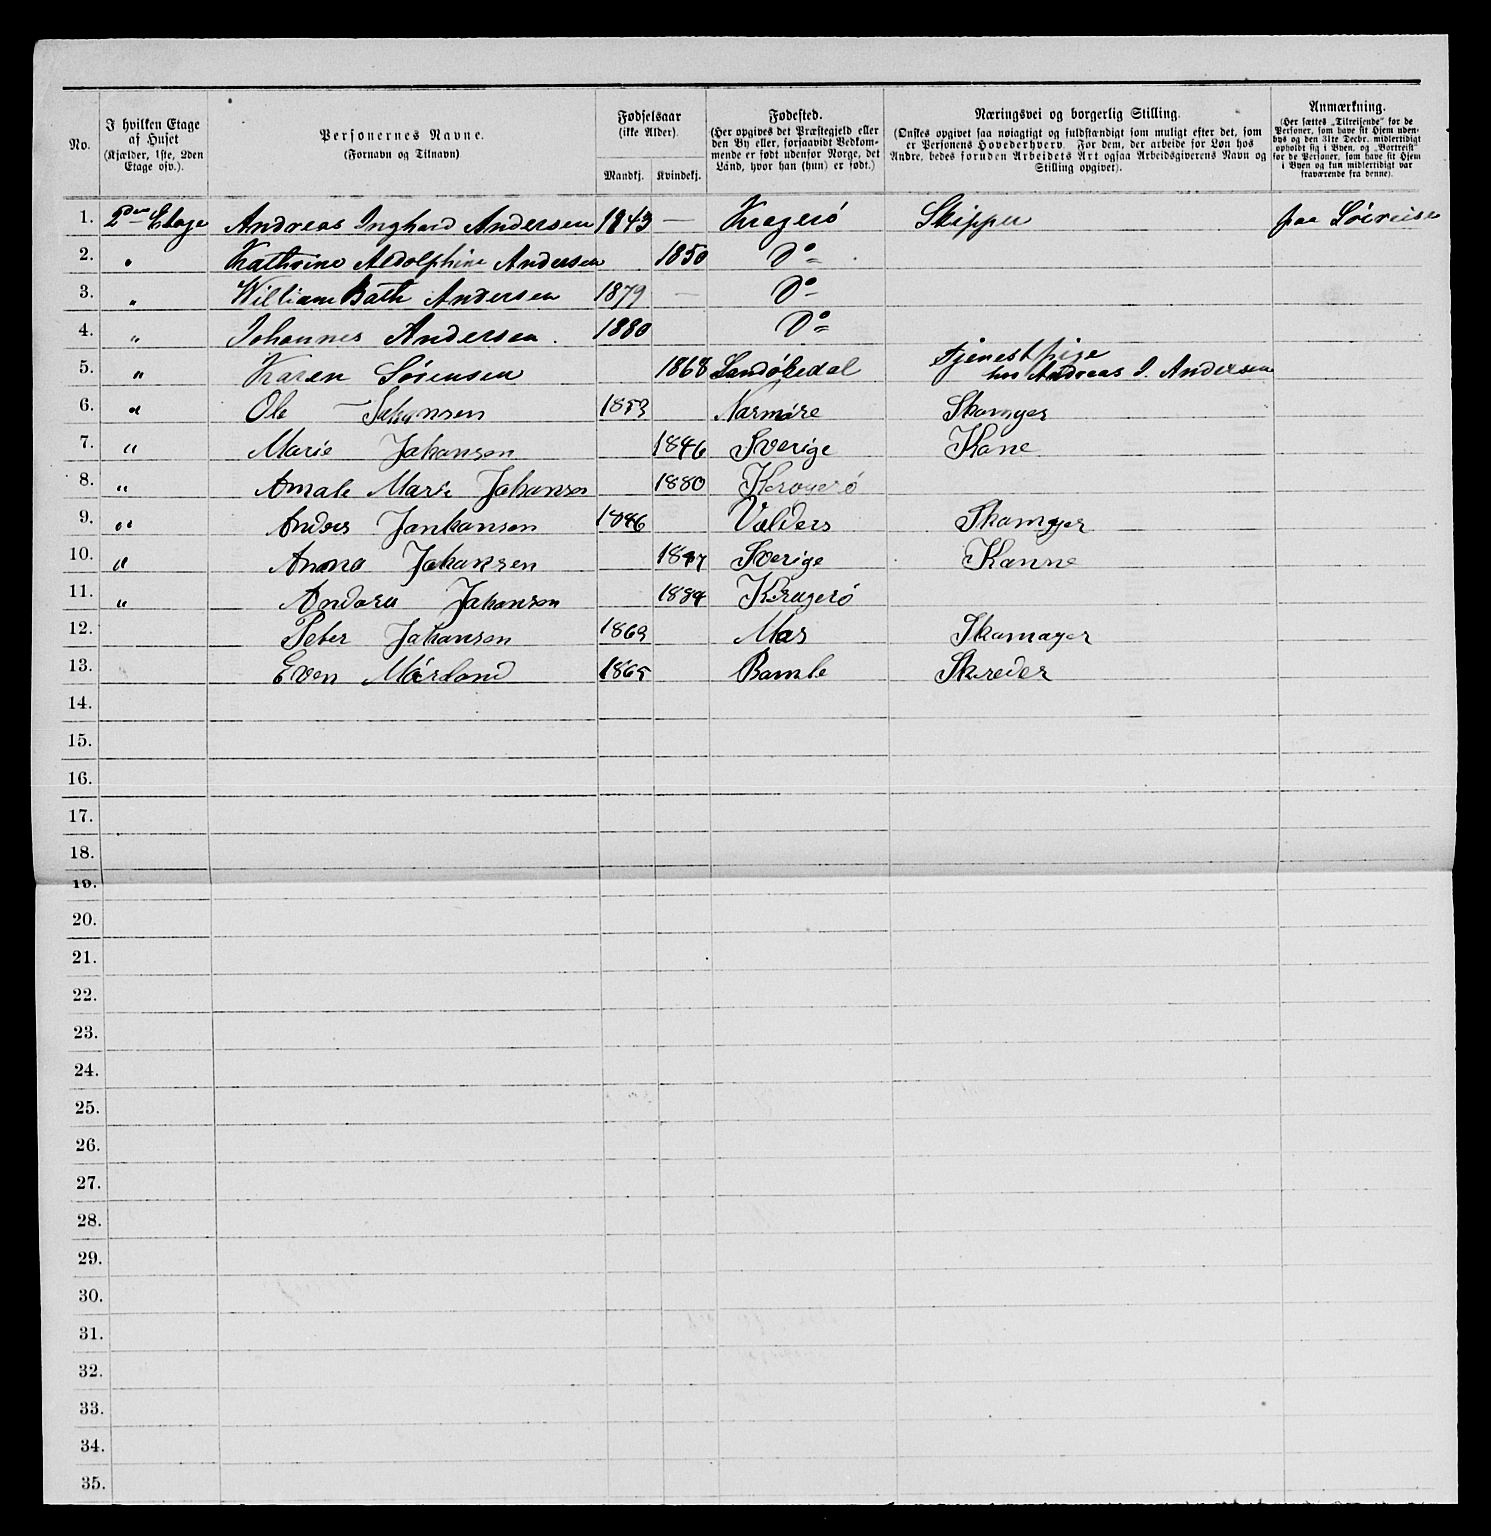 No.
I hvilken Etage
af Huset
(Kjælder, 1ste, 2den
Etage osv.).
Personernes Navne.
(Fornavn og Tilnavn)
Fødselsaar
(ikke Alder).
Mandkj. Kvindekj.
Fødested.
(Her opgives det Præstegjeld eller
den By eller, forsaavidt Vedkom-
mende er født udenfor Norge, det
Land, hvor han (hun) er født.)
Næringsvei og borgerlig Stilling.
(Ønskes opgivet saa nøiagtigt og fuldstændigt som muligt efter det, som
er Personens Hovederhverv. For dem, der arbeide for Løn hos
Andre, bedes foruden Arbeidets Art ogsaa Arbeidsgiverens Navn og
Stilling opgivet).
Anmærkning.
(Her sættes „Tilreisende“ for de
Personer, som have sit Hjem uden-
bys og den 31te Decbr. midlertidigt
opholdt sig i Byen, og „Bortreist“
for de Personer, som have sit Hjem
i Byen og kun midlertidigt var
fraværende fra denne).
1. 2den Etage Andreas Inghard Andersen 1843 — Kragerö Skipper paa Söireise
2. " Kathrine Aldolphine Andersen 1850 Do
3. " William Bath Andersen 1879 — Do
4. " Johannes Andersen. 1880 Do
5. " Karen Sørensen 1868 Sandökedal Tjenestpige
hos Andreas I. Andersen
6. " Ole Johansen 1853 Skomager
7. " Marie Johansen 1846 Sverige Kone
8. " Amale Marie Johansen 1880 Kragerö
9. " Anders Johansen 1846 Valders Skomager
10. " Anna Johansen Sverige Kanne
11. " Johansen 1884 Kragerö
12. Peter Johansen 1869 Mas Skomager
13. Even Mörland 1865 Bamle Skreder
14.
15.
16.
17.
18.
19.
20.
21.
22.
23.
24.
25.
26.
27.
28.
29.
30.
31.
32.
33.
34.
35.